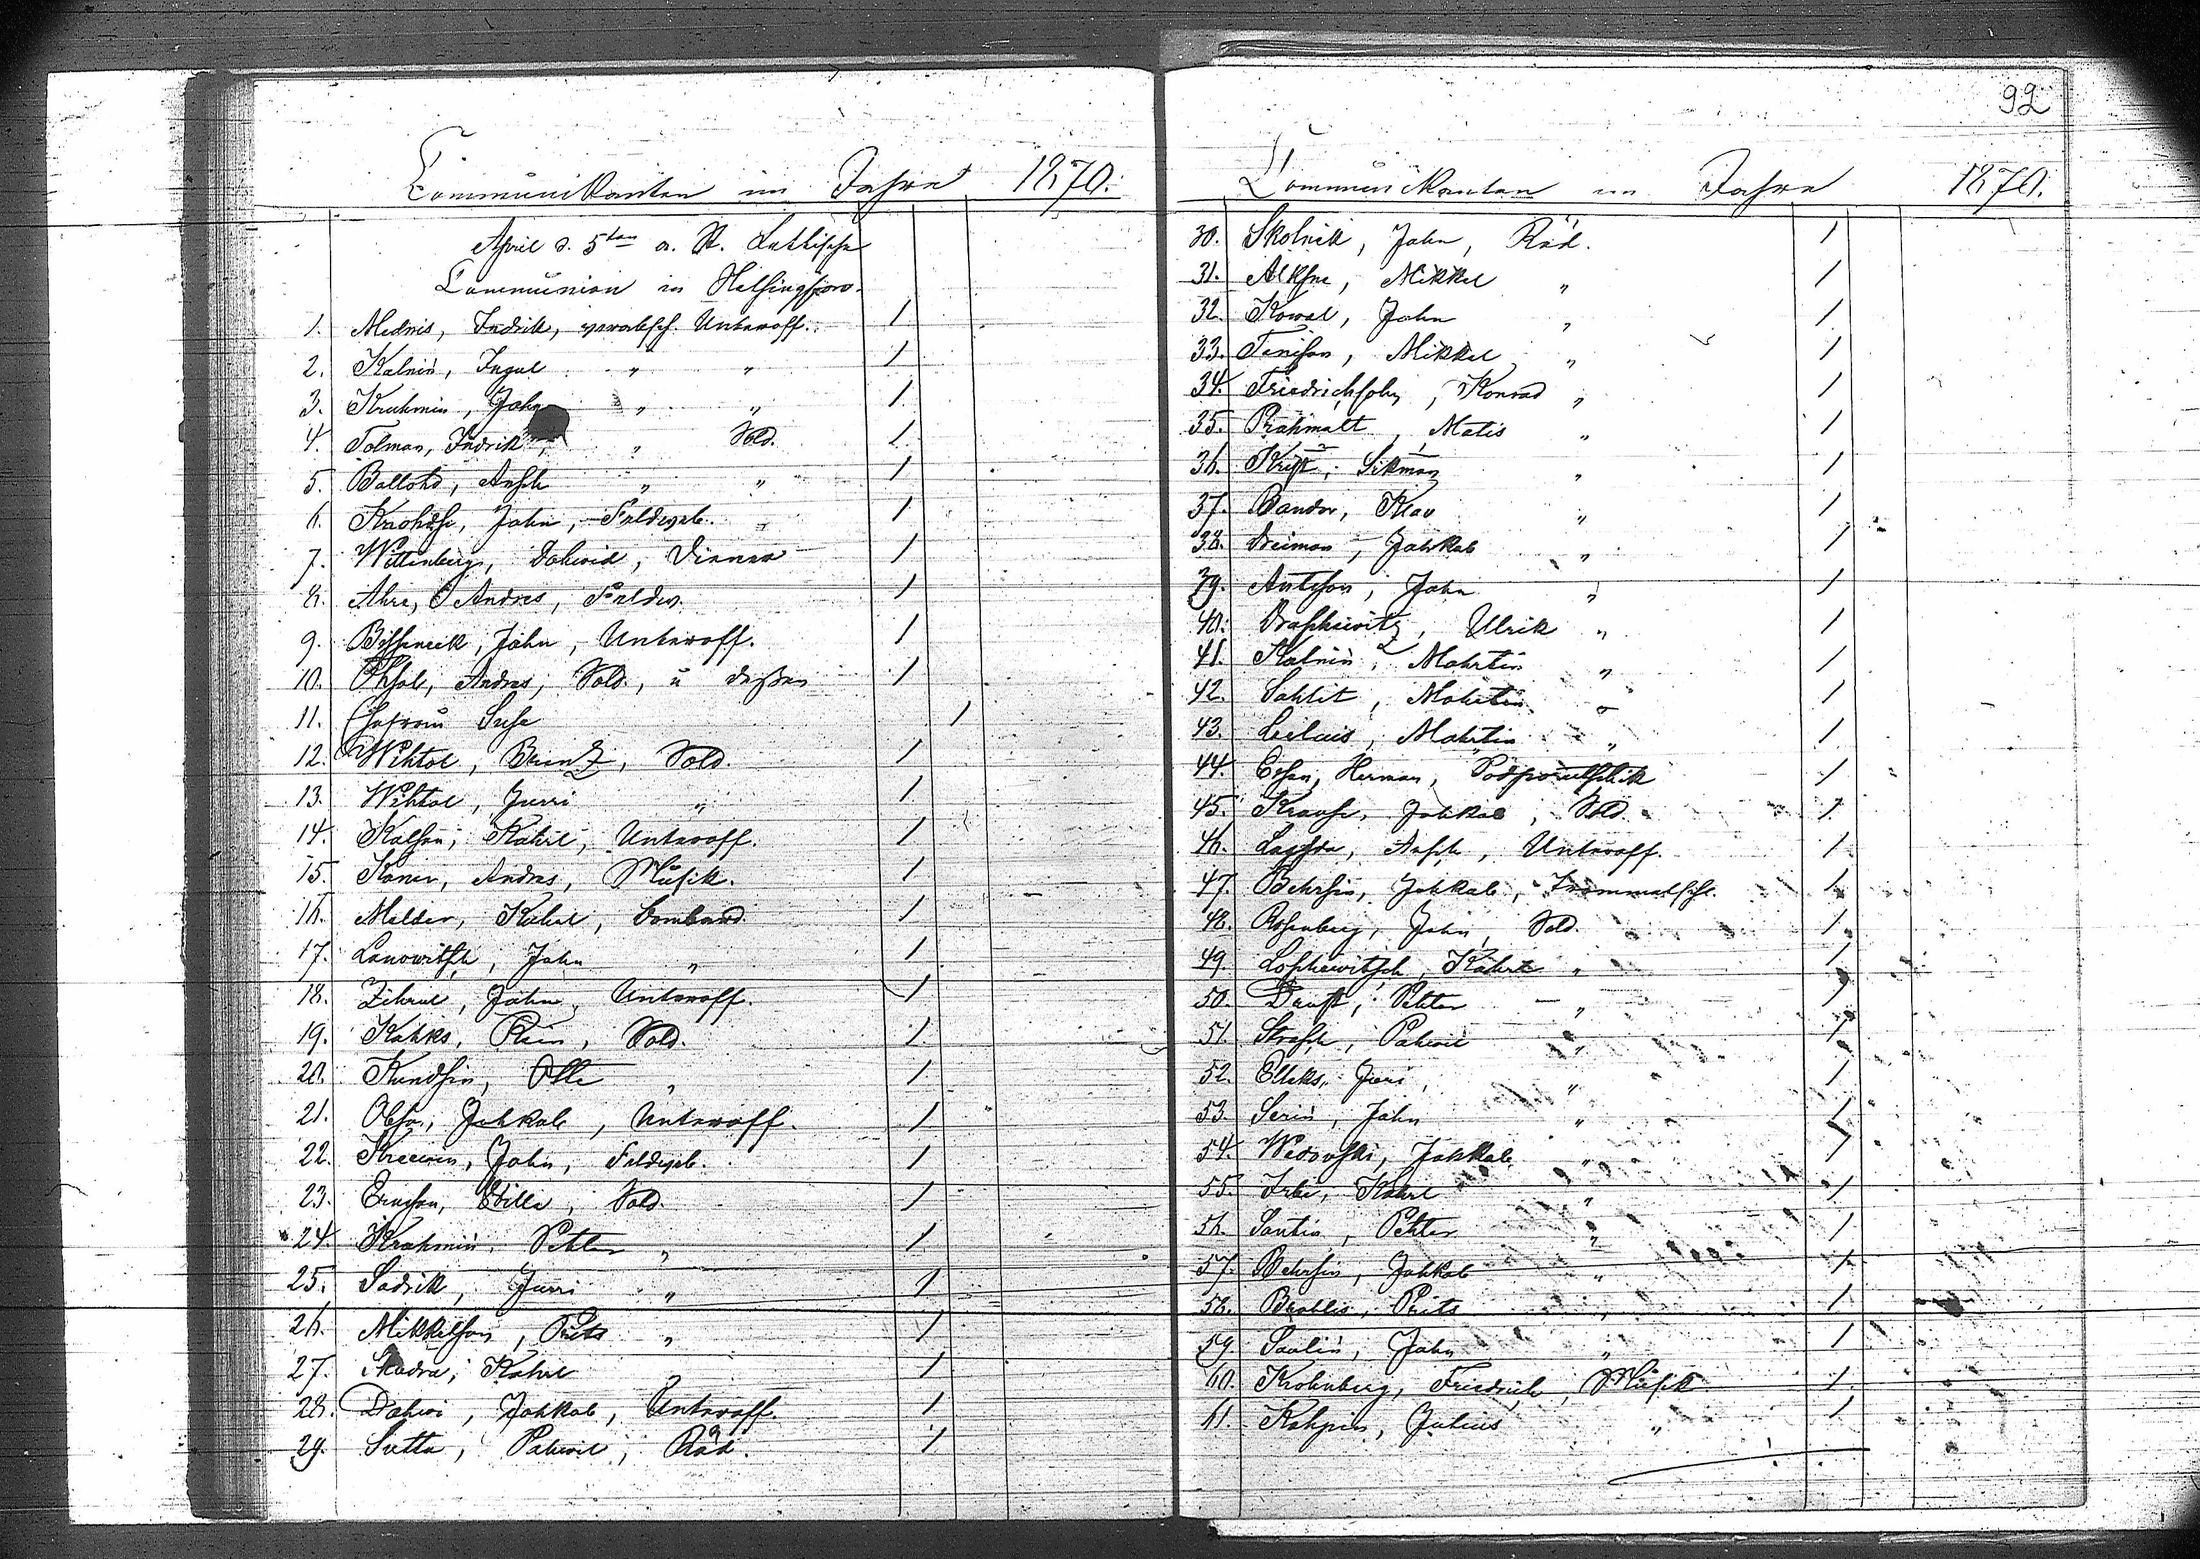 92
Communikanten im Jahre 1870.
April d. 5ten a. St. Lettische
Communion in Helsingfors.
1. Mednis, Indrik, Unteroff. 1
2. Kalnin, Ingul " " 1
3. Kruhmin, Jahn " " 1
4. Tolman, Indrik, " Sold. 1
5. Ballohd, Ansch " " 1
6. Jahn, Feldweb. 1
7. Wittenberg, Dahwid, Diener 1
8. Ahre, Andres, Feldw. 1
9. Bisseneek, Jahn, Unteroff. 1
10. Ohsol, Andres, Sold., u dessen 1
11. Ehefrau Suse 1
12. Wihtol, Brenz, Sold. 1
13. Wihtol, Jurri " 1
14. Kalson, Kahrl, Unteroff. 1
15. Andres, Musik. 1
16. Melder, Kahrl, Bombard. 1
17. Lanowitsch, Jahn " 1
18. Zihrul, Jahn, Unteroff. 1
19. Kahks, Rein, Sold. 1
20. Kundsin, Otte " 1
21. Jahkob, Unteroff. 1
22. Kreewin, Jahn, Feldweb. 1
23. Ernson, Wille, Sold. 1
24. Krahmin, Pehter " 1
25. Sadrik, Jurri " 1
26. Mikkelson, Prits " 1
27. Skudra, Kahrl " 1
28. Dahwi, Jahkob, Unteroff. 1
29. Sutta, Pahwil, Räd. 1
Communikanten im Jahre 1870.
30. Skolnik, Jahn, Räd. 1
31. Alksne, Mikkel " 1
32. Kowal, Jahn " 1
33. Tenison, Mikkel " 1
34. Friedrichsohn, Konrad " 1
35. Prahmalt, Matis " 1
36. Sikman " 1
37. Bandor, Klav " 1
38. Dreiman, Jahkob " 1
39. Antson, Jahn " 1
40. Draschewitz, Ulrik " 1
41. Kalnin, Mahrtin " 1
42. Sahlit, Mahrtin " 1
43. Mahrtin " 1
44. Herman, Podporutschik 1
45. Krause, Jahkob, Sold. 1
46. Lagsda, Ansch, Unteroff. 1
47. Behrsin, Jahkob, Trommelschl. 1
48. Rosenberg, Jahn, Sold. 1
49. Loschewitsch, Kahrl " 1
50. Pehter " 1
51. Strasch, Pahwil " 1
52. Elleks, Jurri, " 1
53. Serin, Jahn " 1
54. Wedovski, Jahkob " 1
55. Irbe, Kahrl " 1
56. Santin, Pehter " 1
57. Behrsin, Jahkob " 1
58. Brahlis, Prits " 1
59. Saulin, Jahn " 1
60. Krohnberg, Friedrich, Musik 1
61. Kahpin, Julius " 1